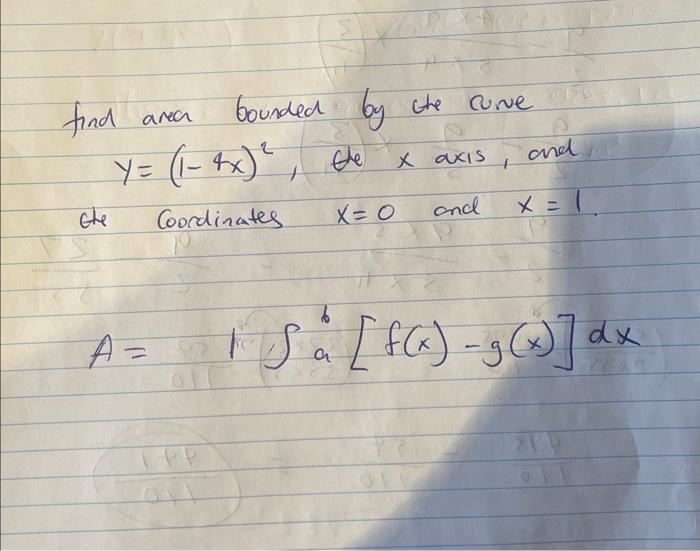 find area bounded by the curve
y = (1 - 4x)², the x axis, and
the Coordinates x = 0 and x = 1.
A = | ∫ₐᵇ [f(x) - g(x)] dx